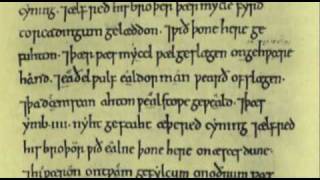 cyning. ⁊ælfred his broþer þær micle fyrd
to readingum gelæddon. ⁊ wiþ þone here ge
fuhton. ⁊ þær wæs mycel wæl geslagen on gehwæþere
hand. ⁊ eadelwulf ealdorman wearð ofslagen.
⁊ þa deniscan ahton wælstowe geweald. ⁊ þæs
ymb .iiii. nyht gefeaht æþered cyning ⁊ ælfred
his broþor wið ealne þone here on æsces dune.
⁊ hi wæron on twam gefylcum on oðrum wæs